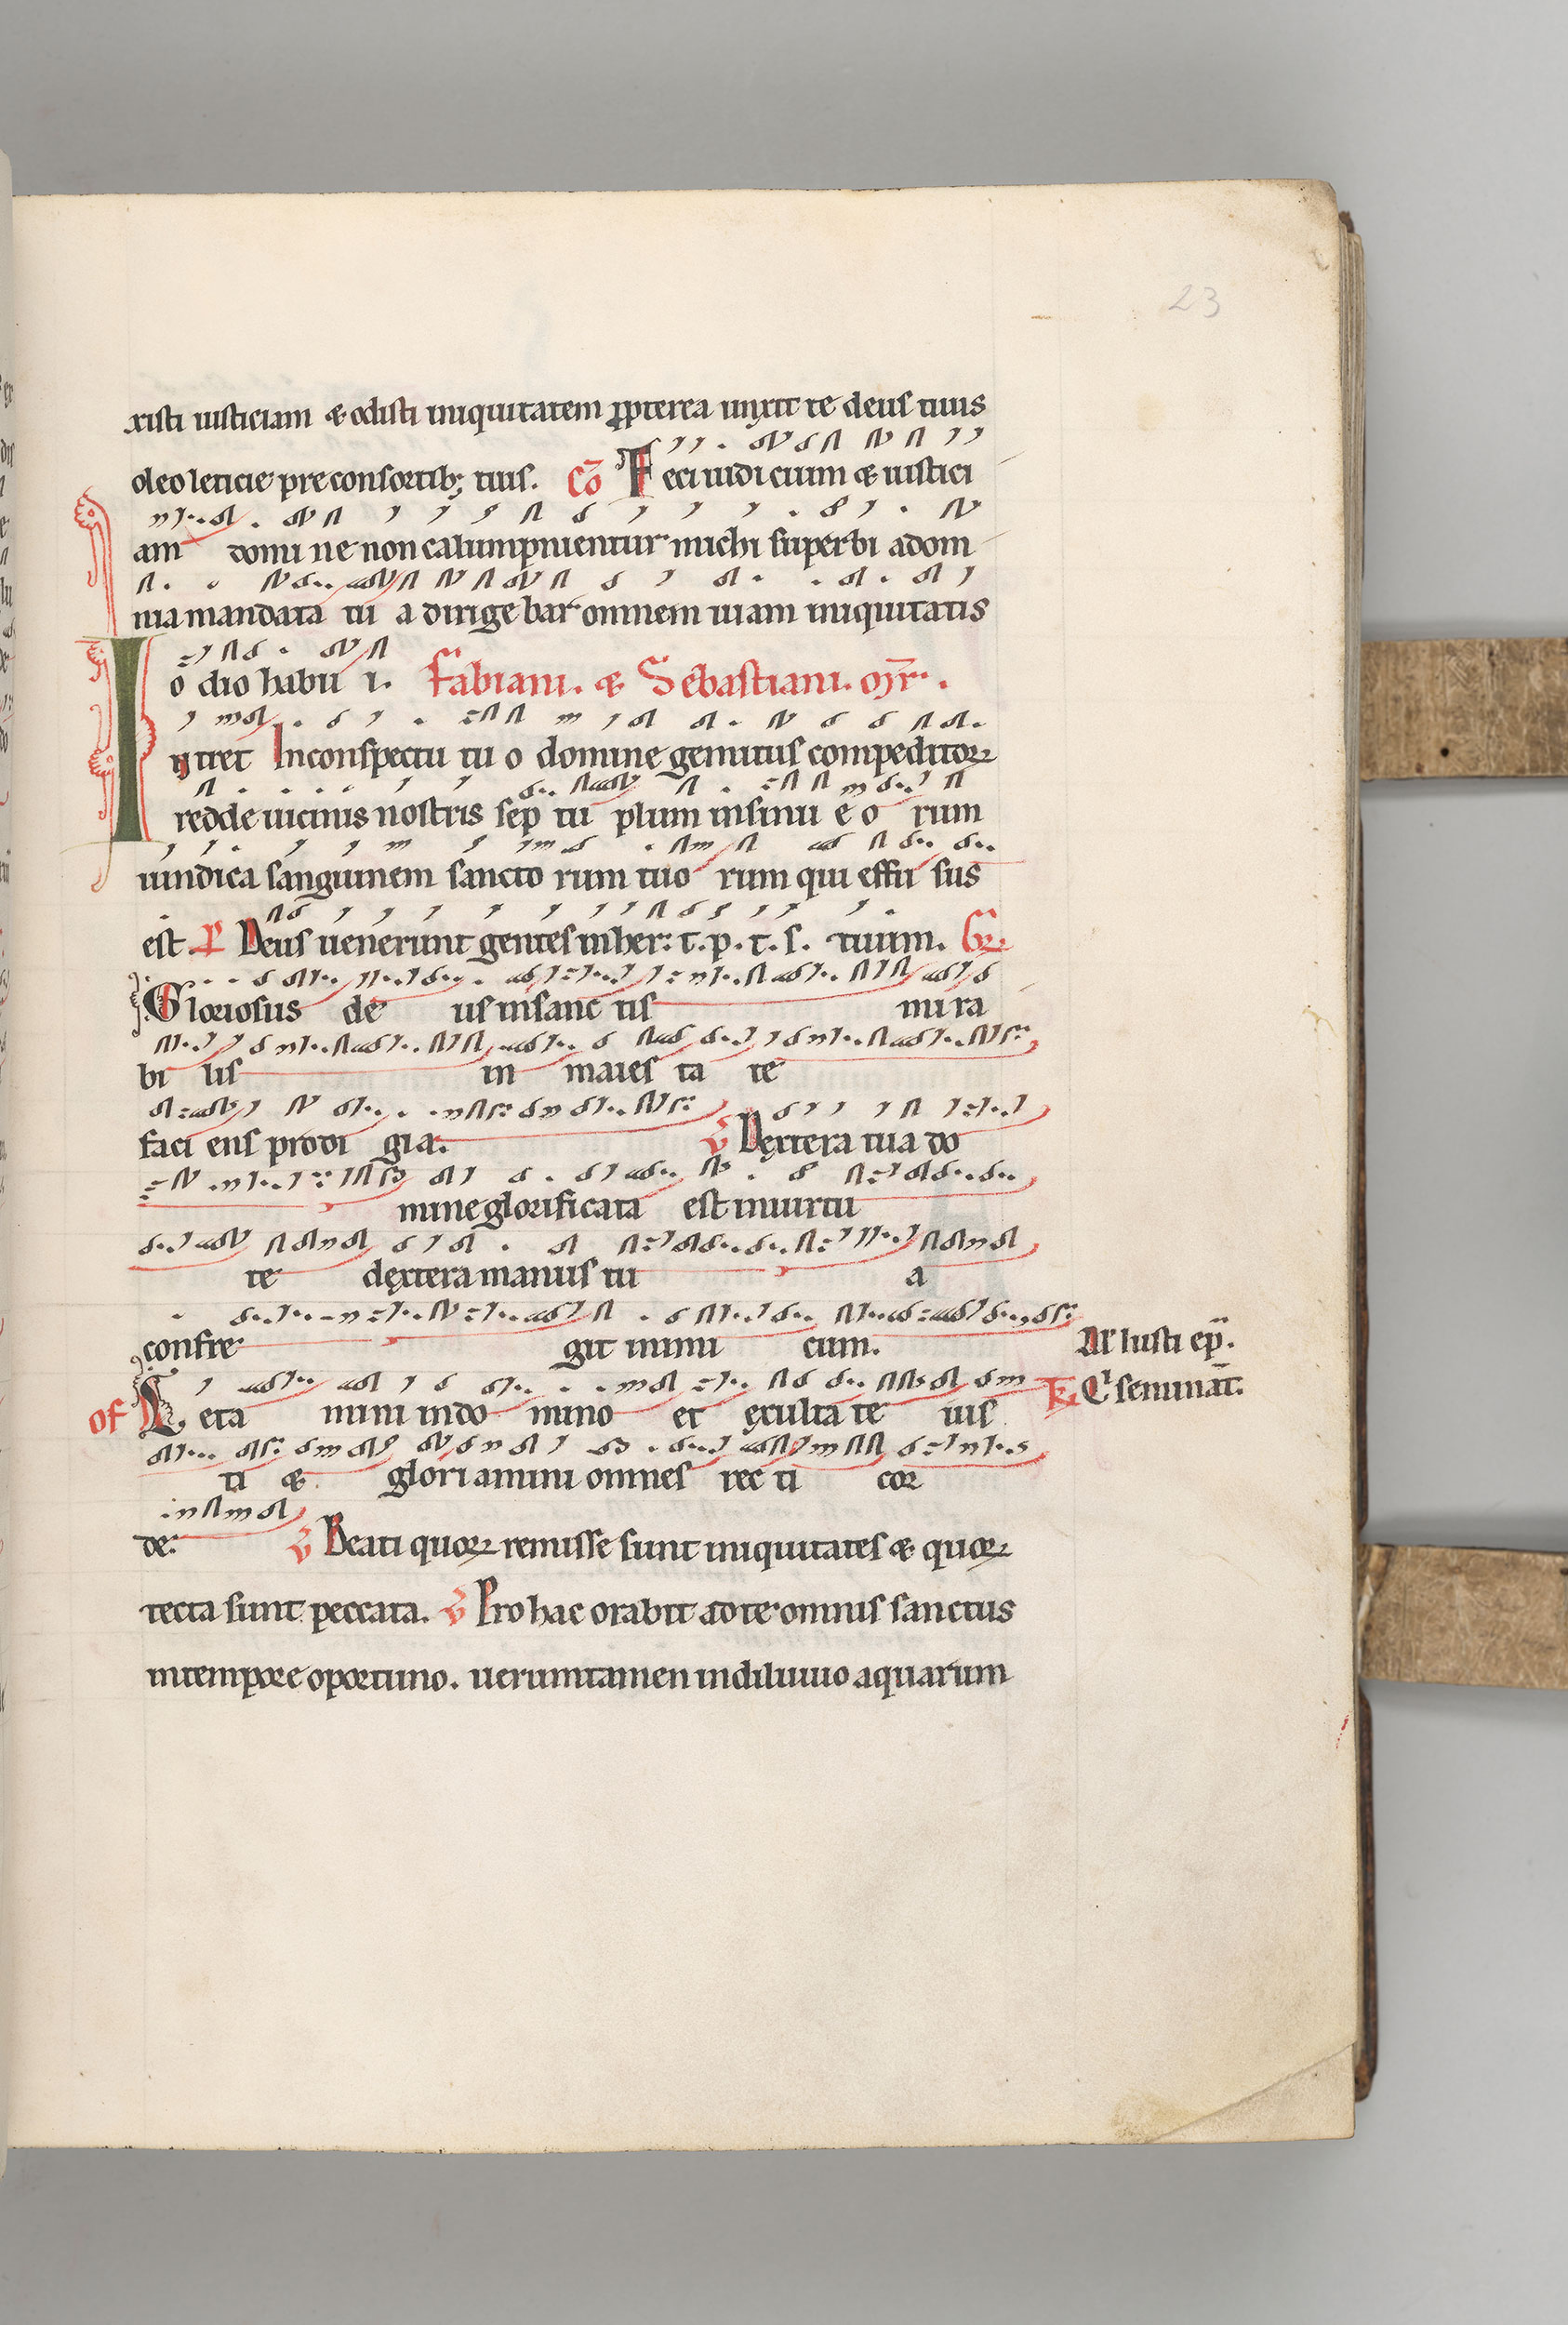 23
xisti iusticiam & odisti iniquitatem ꝓpterea unxit te deus tuus
oleo leticie pre consortib; tuis. Cō Feci iudicium & iustici
am domi ne non calumpnientur michi superbi adom
nia mandata tu a dirige bar omnem uiam iniquitatis
o dio habu i. Fabiani. & Sebastiani. mr̄.
Intret Inconspectu tu o domine gemitus compeditoꝝ
redde uicinis nostris sep tu plum insinu e o rum
uindica sanguinem sancto rum tuo rum qui effu sus
est P Deus uenerunt gentes inher: t. p. t. s. tuum. Gr.
Gloriosus de us insanc tis mi ra
bi lis in maies ta te
faci ens prodi gia. v̄ Dextera tua do
mine glorificata est inuirtu
te dextera manus tu a
confre git inimi cum. Al' Iusti ep̄.
of Leta mini indo mino et exulta te ius C seminat̄.
ti & glori amini omnes rec ti cor
de. v̄ Beati quoꝝ remisse sunt iniquitates & quoꝝ
tecta sunt peccata. v̄ Pro hac orabit adte omnis sanctus
intempore oportuno. uerumtamen indiluuio aquarum